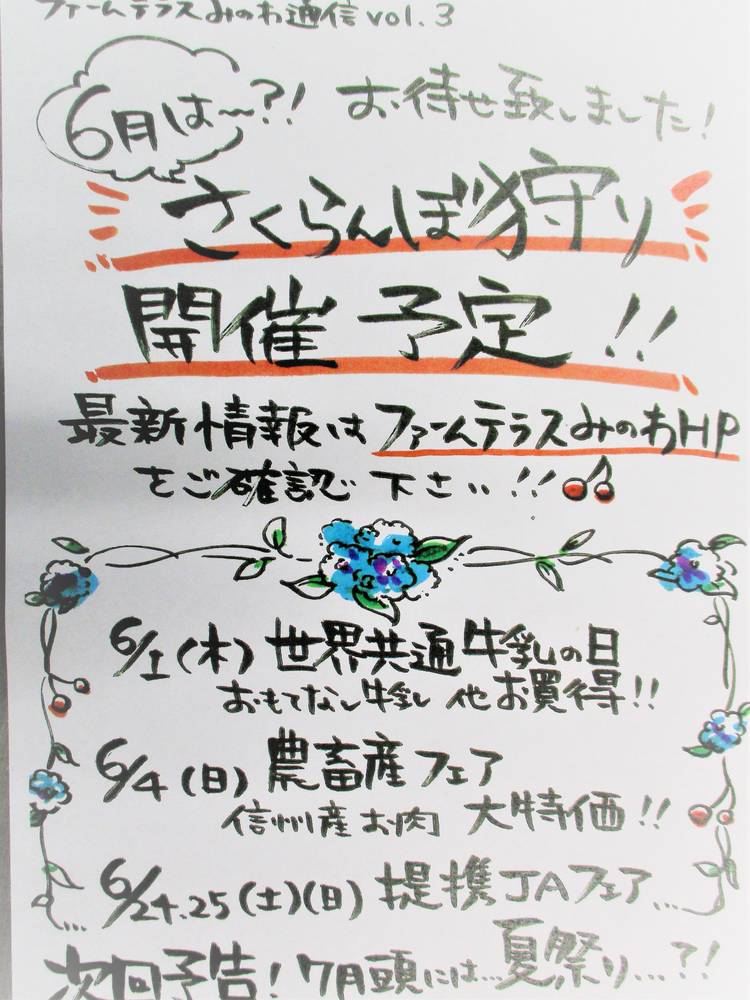 ファームテラスみのわ通信vol.3
6月は〜?! お待せ致しました!
さくらんぼ狩り
開催予定!!
最新情報はファームテラスみのわHP
をご確認下さい!!
6/1(木)世界共通牛乳の日
おもてなし牛乳 他お買得!!
6/4(日)農畜産フェア
信州産お肉 大特価!!
6/24.25(土)(日)提携JAフェア...
次回予告!7月頭には…夏祭り…?!